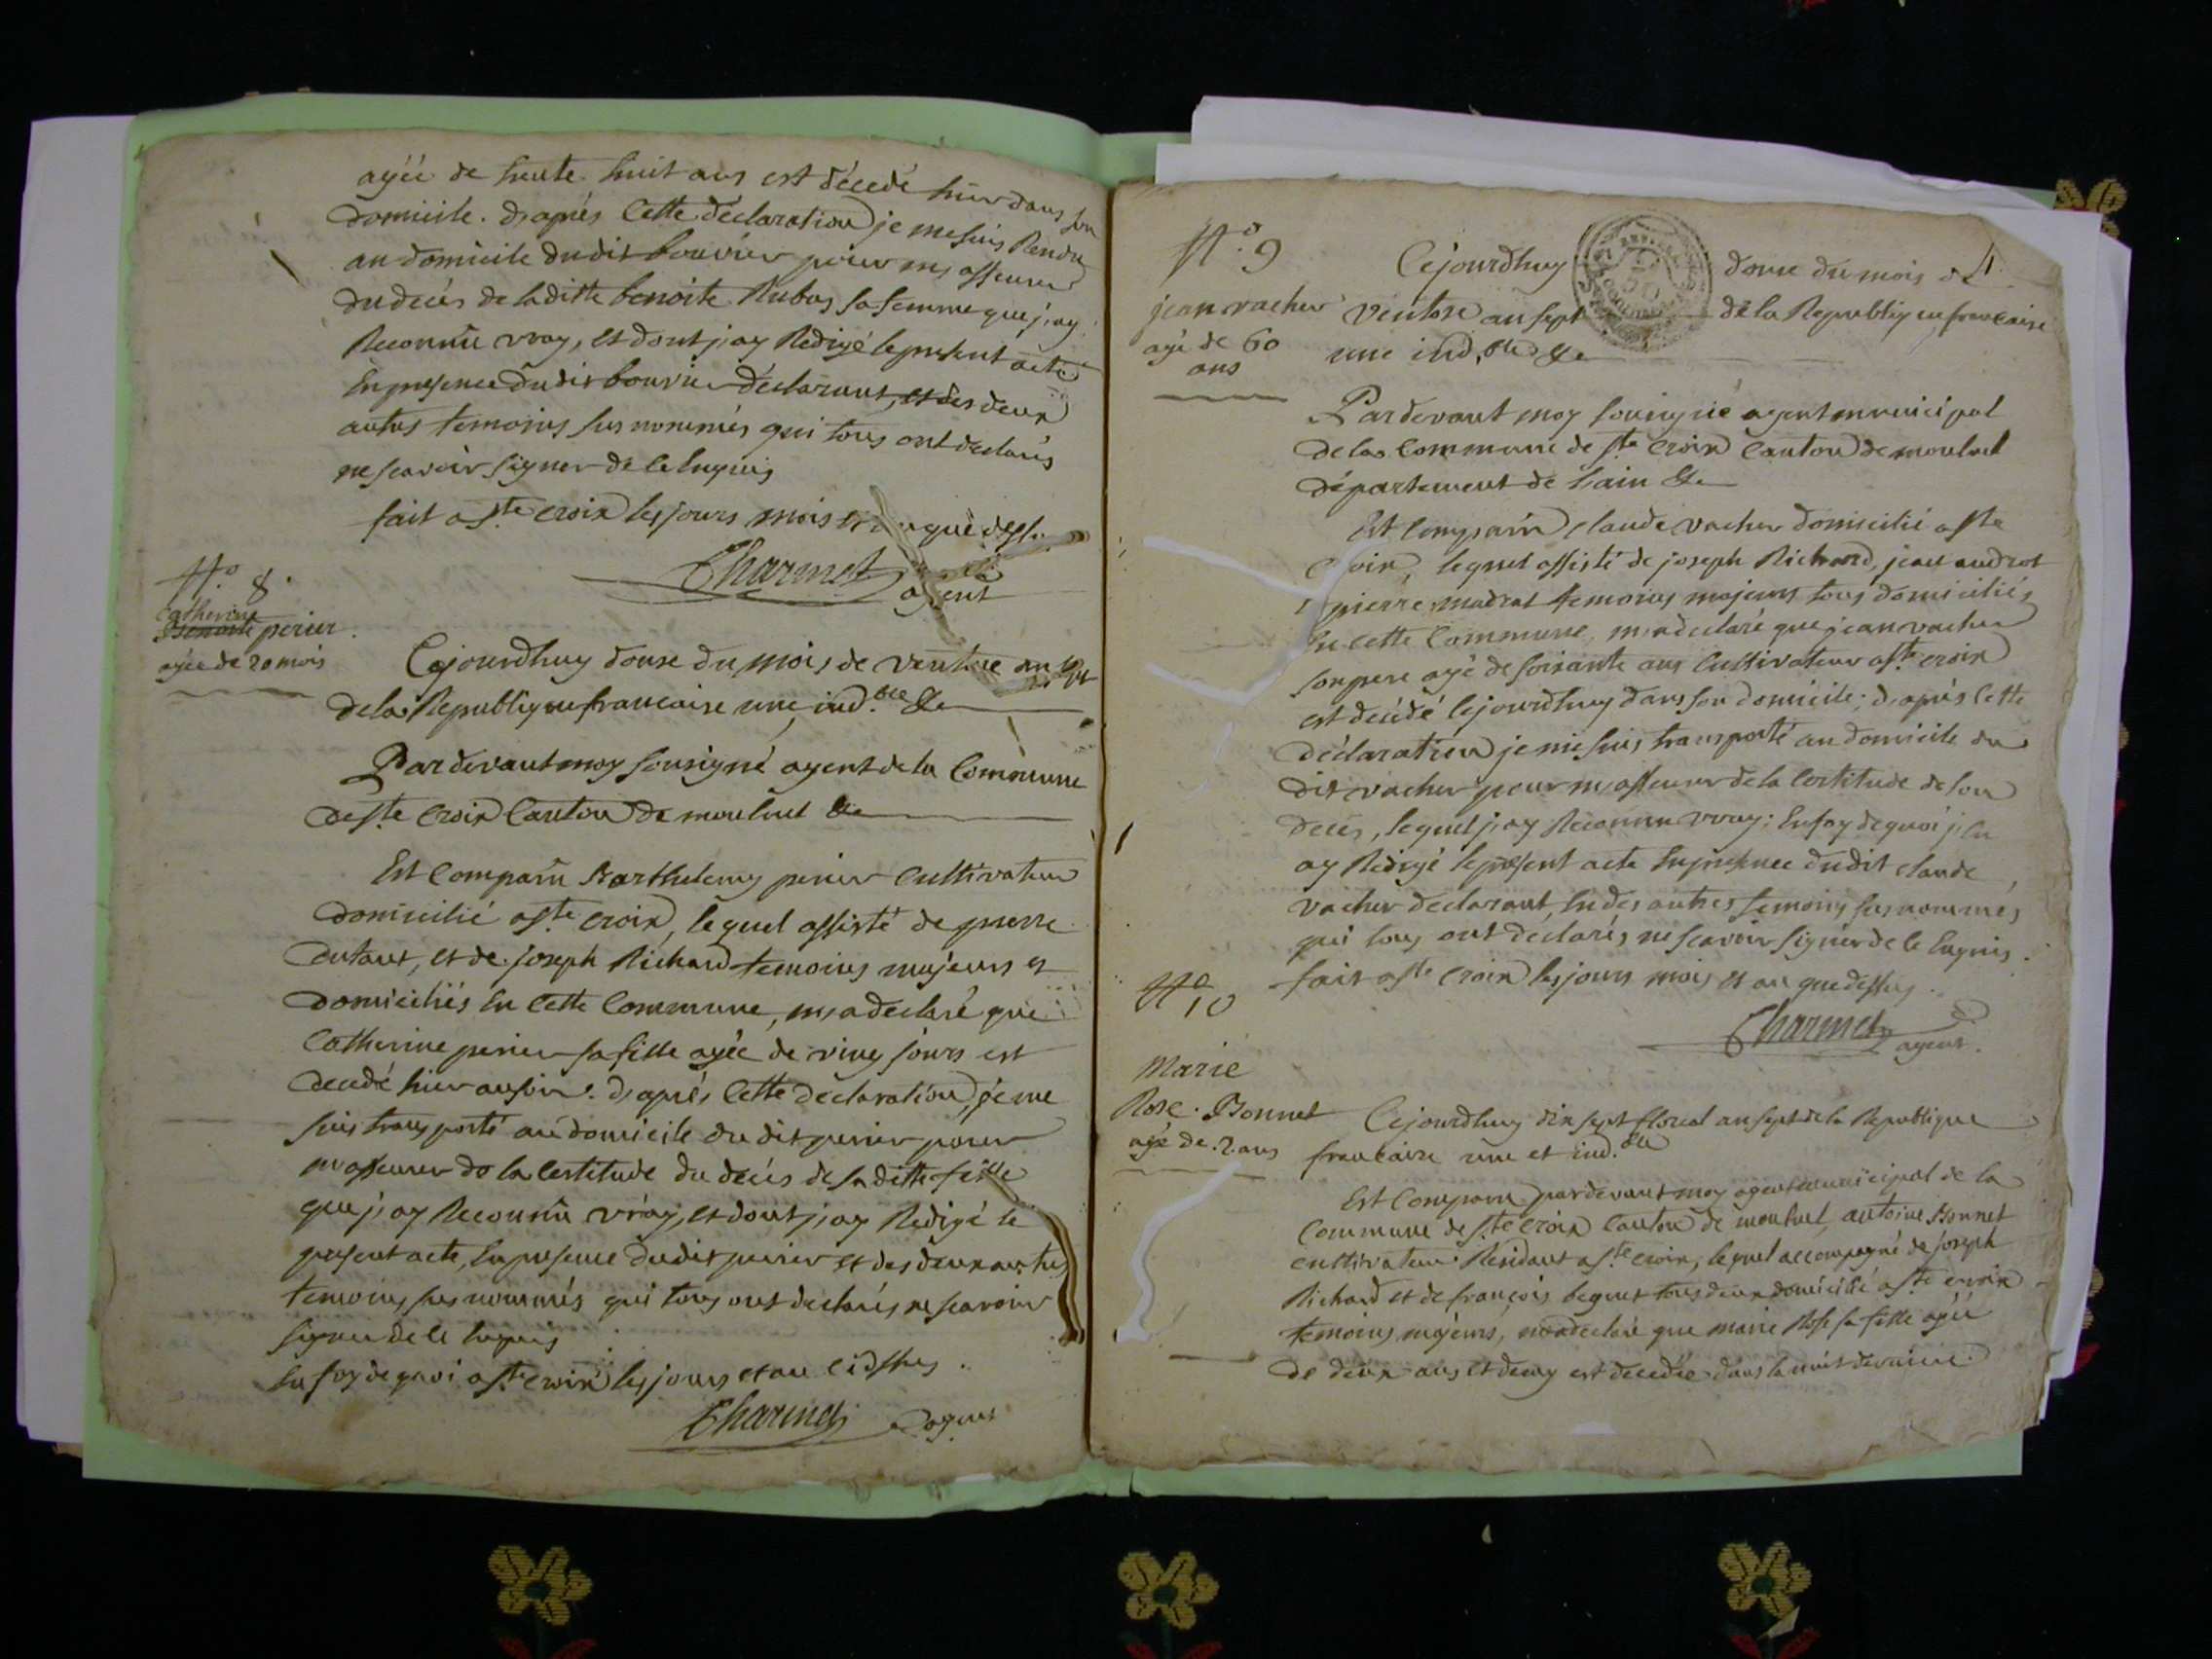 agée de trente huit ans est décedé hier dans son
domicile. d,aprés Cette déclaration je me suis Rendu
au domicile dudit bouvier pour m,asseurer
du decés de laditte benoite Rubas sa femme que j,ay
Reconnu vray, et dont j,ay Redigé le present acte
En presence dudit bouvier déclarant, et des deux
autres temoins sus nommés qui tous ont declarés
ne scavoir signer de ce Enquis
fait a Ste croix les jours mois et an que dessus
Charmet
agent
N.o 8.
Catherine
Benoite perier.
agée de 20 mois
Cejourdhuy douse du mois de ventose an sept
de la Republique francaise une ind.ble &e
Pardevant moy sousigné agent de la Commune
de Ste Croix Canton de montluel &e
Est Comparu Barthelemy perier Cultivateur
domicilié a Ste croix, lequel assisté de pierre
dutant, et de joseph Richard temoins majeurs et
domiciliés En Cette Commune, m,a declaré que
Catherine perier sa fille agée de ving jours est
decedé hier au soir. d,aprés Cette declaration, je me
suis transporté au domicile du dit perier pour
m,asseurer de la Certitude du decés de sa ditte fille
que j,ay Reconnu vray, et dont j,ay Redigé le
present acte, En presence dudit perier et des deux autres
temoins sus nommés qui tous ont declarés ne scavoir
signer de ce Enquis
En foy de quoi a Ste croix les jours et an Cidessus.
Charmet agent
4
N.o 9
jean vacher
agé de 60
ans
Cejourdhuy douse du mois de
ventose an sept de la Republique francaise
une ind,ble &e
Pardevant moy sousigné agent municipal
de la Commune de Ste Croix Canton de montluel
département de l'ain &e
Est Comparu Claude vacher domicilié a Ste
Croix, lequel assisté de joseph Richard, jean audrat
pierre madrat temoins majeurs tous domiciliés
En cette Commune, m,a declaré que jean vacher
son pere agé de soixante ans Cultivateur a Ste croix
est decédé Cejourdhuy dans son domicile; d,aprés Cette
déclaration je me suis transporté au domicile du
dit vacher pour m,asseurer de la Certitude de son
decés, lequel j,ay Reconnu vray; En foy de quoi j,en
ay Redigé le present acte En presence dudit Claude
vacher declarant, En des autres temoins sus nommés
qui tous ont declarés ne scavoir signer de ce Enquis.
fait a Ste Croix les jours mois et an que dessus.
Charmet
agent.
N.o 10
Marie
Rose. Bonnet
agé de .2. ans
Cejourdhuy dix sept floreal an sept de la Republique
francaise une et ind.ble
Est Comparu pardevant moy agent municipal de la
Commune de Ste Croix Canton de montluel, antoine Bonnet
cultivateur Residant a Ste croix, lequel accompagné de joseph
Richard et de francois beguet tous deux domicilié a Ste croix
temoins majeurs, m,a declaré que marie Rose sa fille agée
de deux ans et demy est decedée dans la nuit derniere.